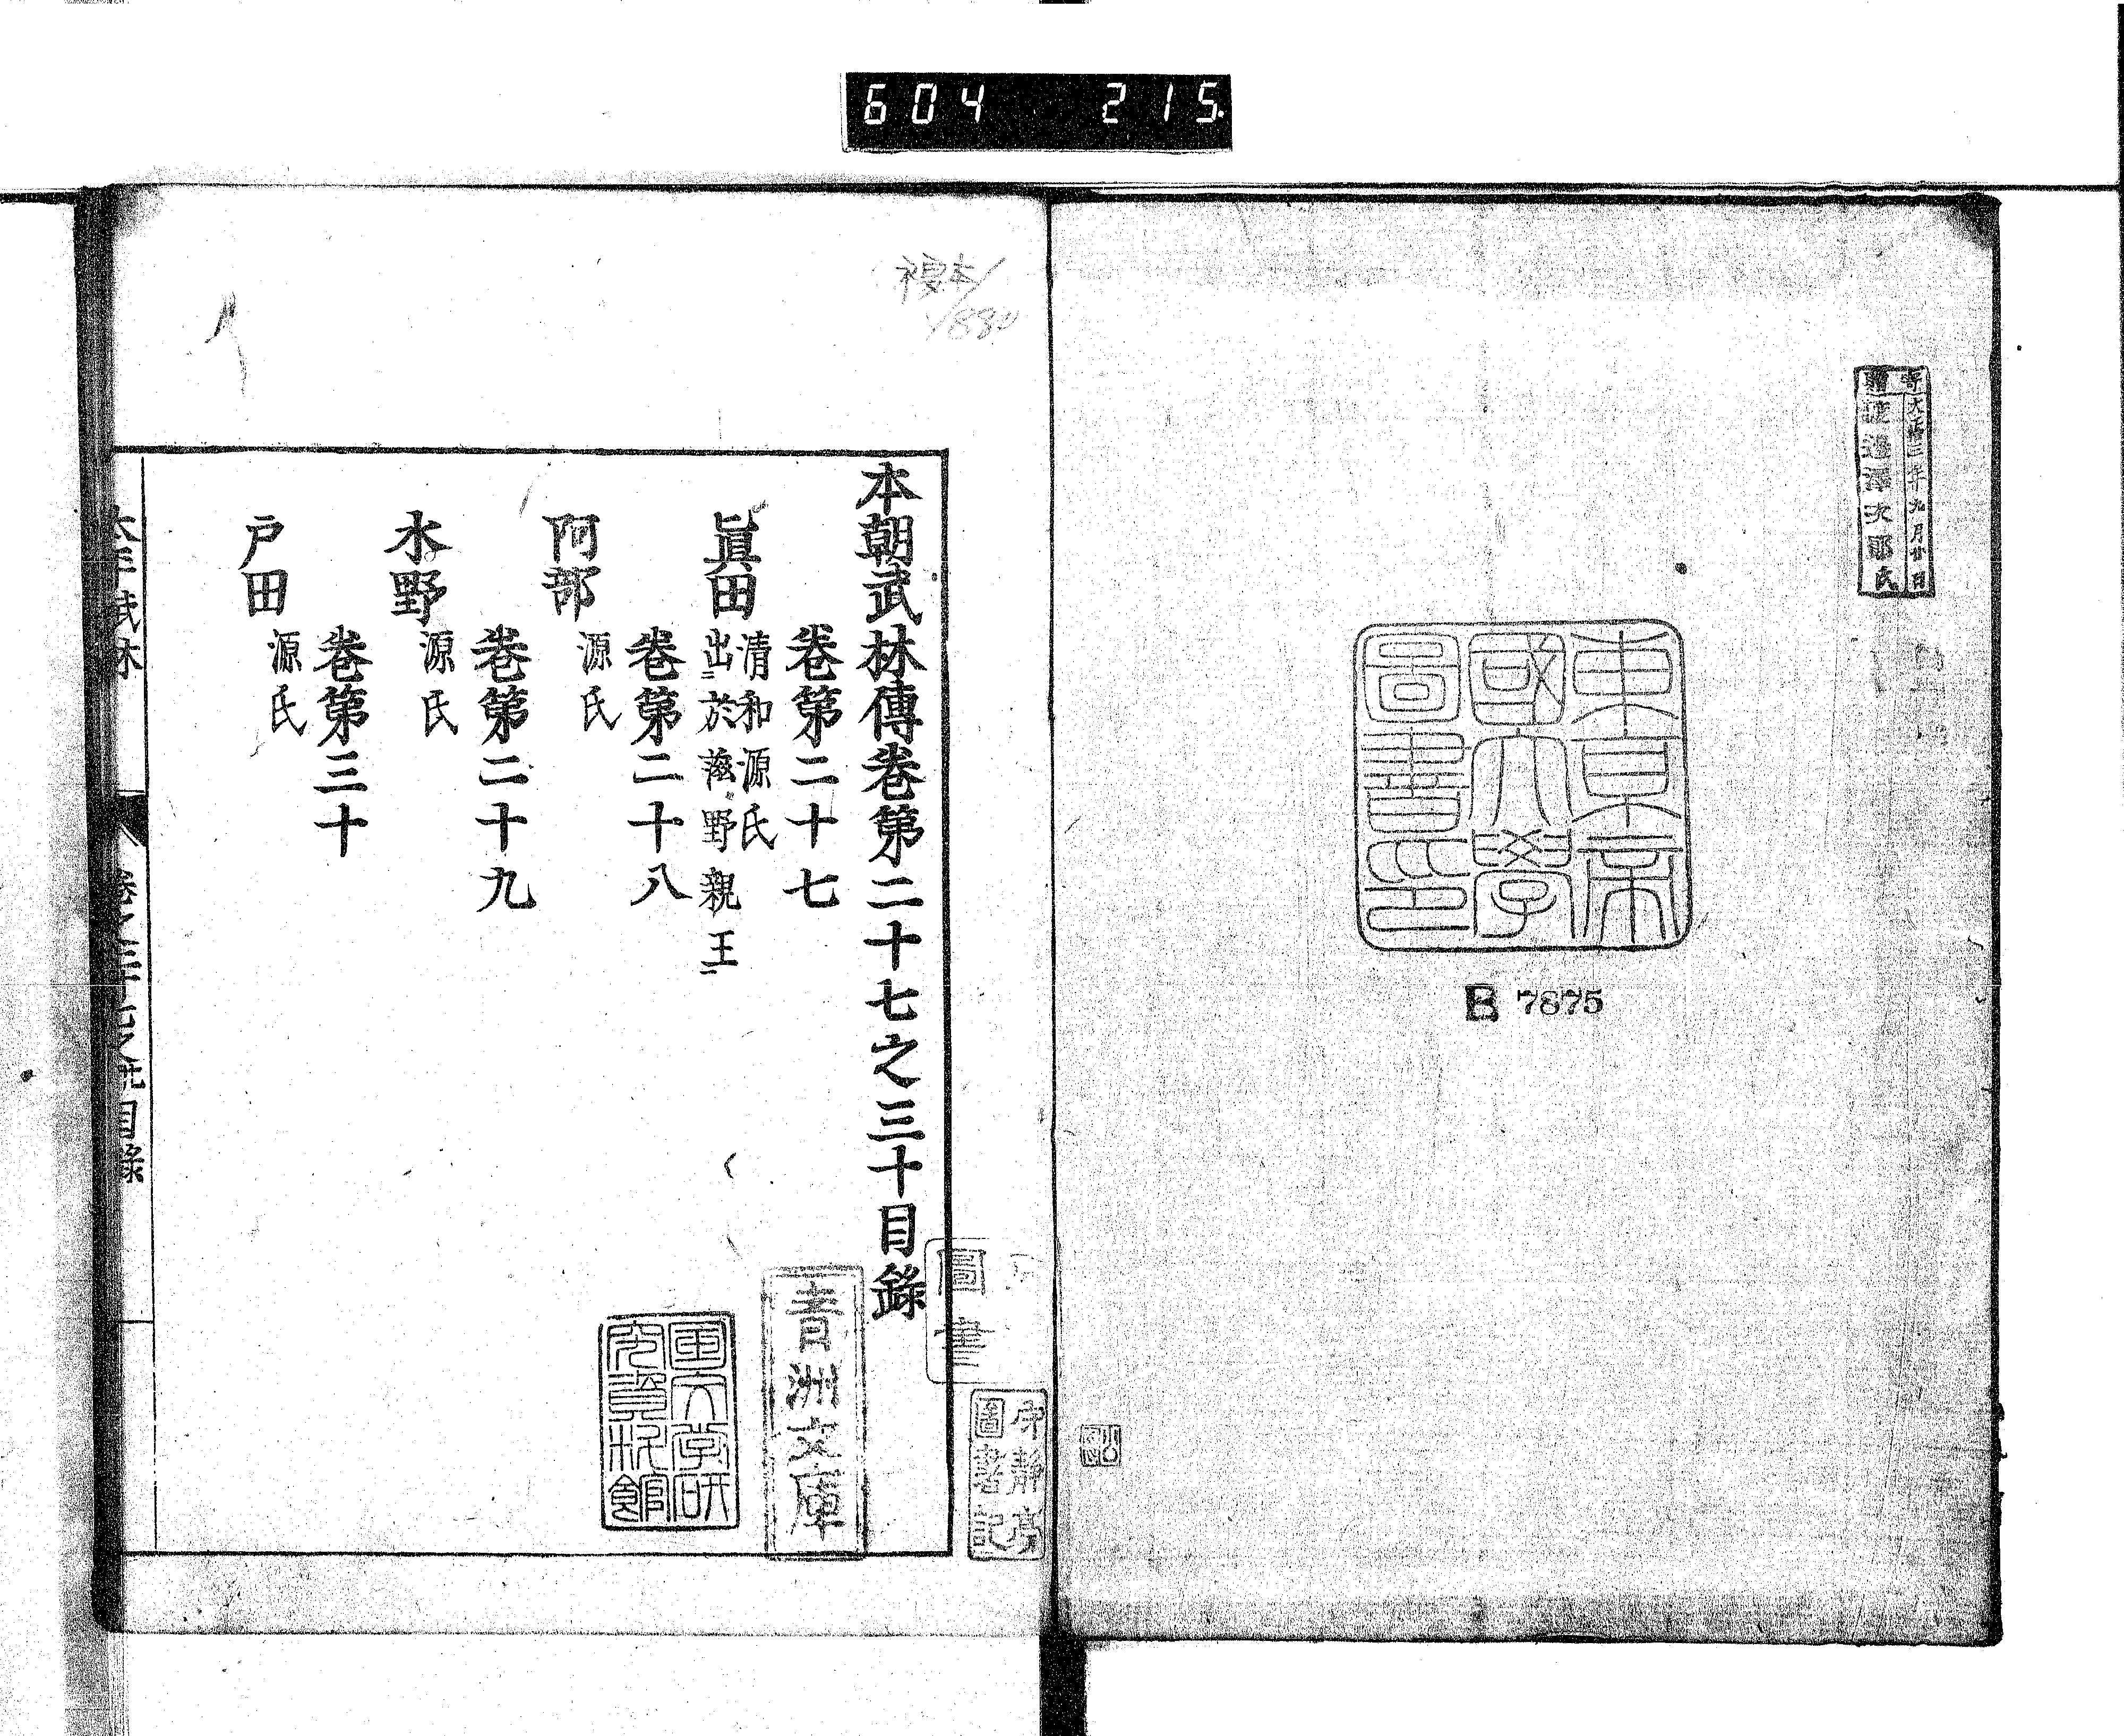 604 215.
寄贈
大正三年九月廿日
渡邊澤次郎氏
東京帝
國大學
圖書印
B 7875
複本
本朝武林傳卷第二十七之三十目錄
卷第二十七
眞田 清和源氏
出於滋野親王
卷第二十八
阿部 源氏
卷第二十九
水野 源氏
卷第三十
戸田 源氏
圖書
静亭
圖書記
青洲文庫
国文学研
究資料館
目錄